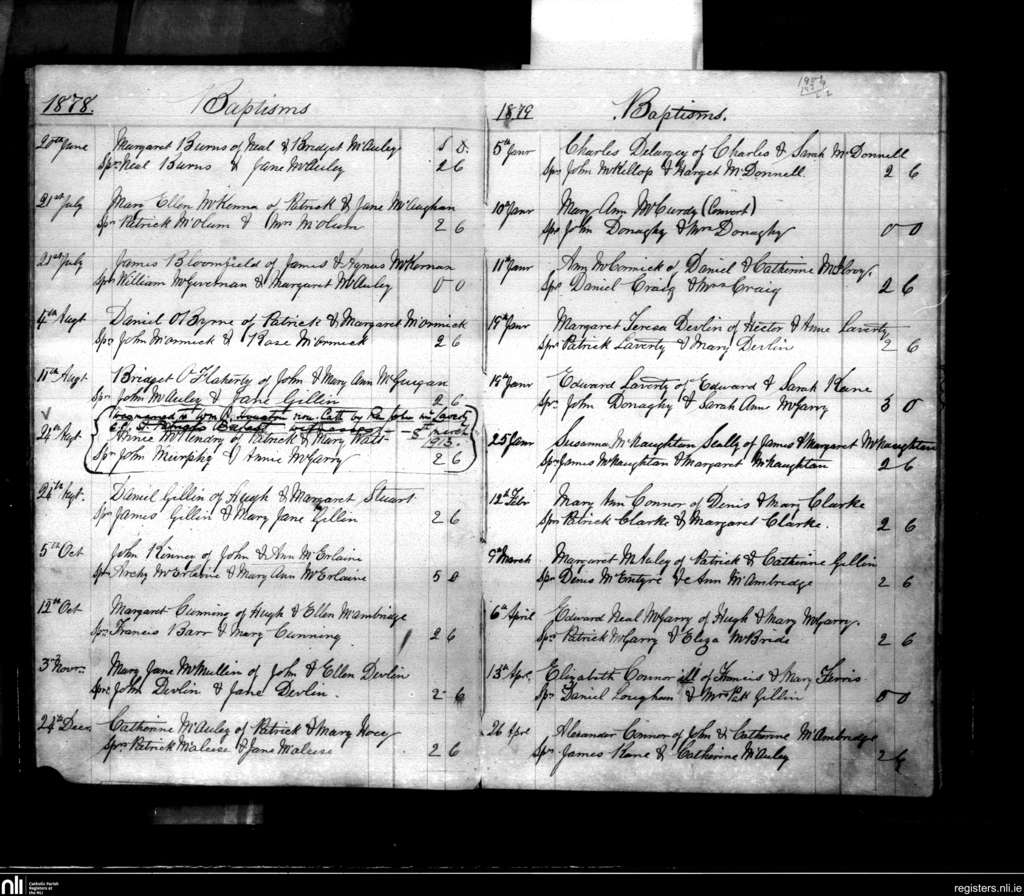 1878. Baptisms
20th June Margaret Burns of Neal & Bridget McAuley S D.
Sprs Neal Burns & Jane McAuley 2 6
21st July Mary Ellen McKenna of Patrick & Jane McAughan
Sprs Patrick McOlum & Mrs McOlum 2 6
21st July James Bloomfield of James & Agnus McKernan
Sprs William McGivernan & Margaret McAuley 0 0
4th Augt Daniel O'Byrne of Patrick & Margaret McCormick
Sprs John McCormick & Rose McCormick 2 6
11th Augt Bridget O'Flaherty of John & Mary Ann McGuigan
Sprs John McAuley & Jane Gillin 2 6
non. Cath by Rev John
St Patricks Belfast witnesses 5th March
24th Augt. Annie McHendry of Patrick & Mary Watt 1913.
Sprs John Murphy & Annie McGarry 2 6
24th Augt. Daniel Gillin of Hugh & Margaret Stuart
Sprs James Gillin & Mary Jane Gillin 2 6
5th Oct John Kinney of John & Ann McErlaine
Sprs Archy McErlaine & Mary Ann McErlaine 5 0
12th Oct Margaret Cunning of Hugh & Ellen McAmbridge
Sprs Francis Barr & Mary Cunning 2 6
3rd Novr. Mary Jane McMullin of John & Ellen Devlin
Sprs John Devlin & Jane Devlin. 2 6
24th Decr. Catherine McAuley of Patrick & Mary
Sprs Patrick McAleese & Jane McAleese 2 6
1879 Baptisms.
5th Janr Charles Delargey of Charles & Sarah McDonnell
Sprs John McKillop & Marget McDonnell 2 6
10th Janr Mary Ann McCurdy (Convert)
Sprs John Donaghy & Mrs Donaghy 0 0
11th Janr Ann McCormick of Daniel & Catherine McIlroy.
Sprs Daniel Craig & Mrs Craig 2 6
19th Janr Margaret Teresa Devlin of Hector & Anne Laverty
Sprs Patrick Laverty & Mary Devlin 2 6
19th Janr Edward Laverty of Edward & Sarah Kane
Sprs John Donaghy & Sarah Ann McGarry 3 0
25 Janr Susanna McNaughtan Scally of James & Margaret McNaughtan
Sprs James McNaughtan & Margaret McNaughtan 2 6
12th Febr Mary Ann Connor of Denis & Mary Clarke
Sprs Patrick Clarke & Margaret Clarke. 2 6
9th March Margaret McAuley of Patrick & Catherine Gillin
Sprs Denis McEntyre & Ann McAmbridge 2 6
6th April Edward Neal McGarry of Hugh & Mary McGarry.
Sprs Patrick McGarry & Eliza McBride 2 6
13th Apr. Elizabeth Connor ill of Francis & Mary Ferris
Sprs Daniel Loughan & Mrs Pat Gillin 0 0
26 Apr Alexander Connor of John & Catherine McAmbridge
Sprs James Kane & Catherine McAuley 2 6
nli Catholic Parish
Registers at
the NLI
registers.nli.ie